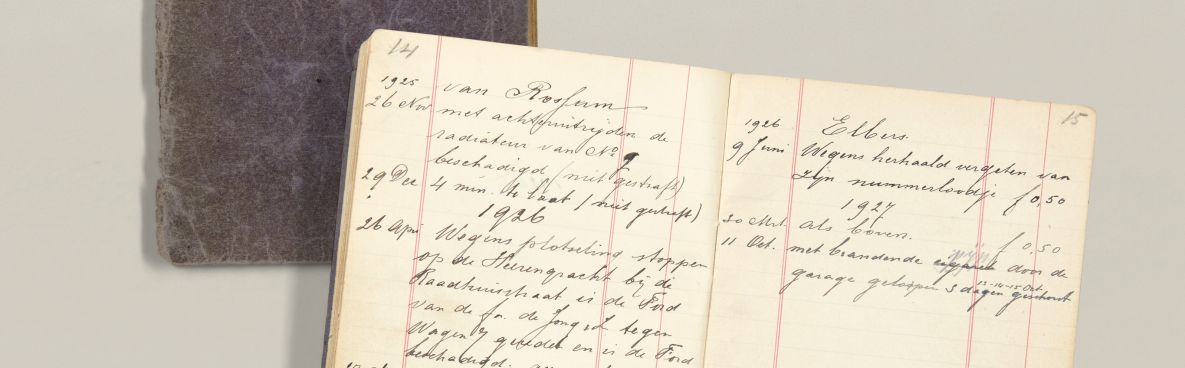 14
1925 van Rossum
26 Nov met achteruitrijden de
radiateur van No 9
beschadigd (niet gestraft)
29 Dec 4 min. te laat (niet gestraft)
1926
26 Apr Wegens plotseling stoppen
op de Heerengracht bij de
Raadhuisstraat is de Ford
van de fa. de Jong tegen
Wagen 7 gereden en is de Ford
beschadigd.
15
1926 Elbers.
9 Juni Wegens herhaald vergeten van
zijn nummerloodje f 0,50
1927
30 Mrt als boven. f 0,50
11 Oct. met brandende door de
13-14-15 Oct.
garage geloopen 3 dagen geschorst